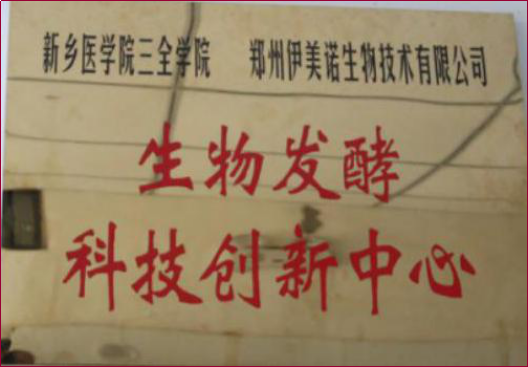 新乡医学院三全学院 郑州伊美诺生物技术有限公司
生物发酵
科技创新中心